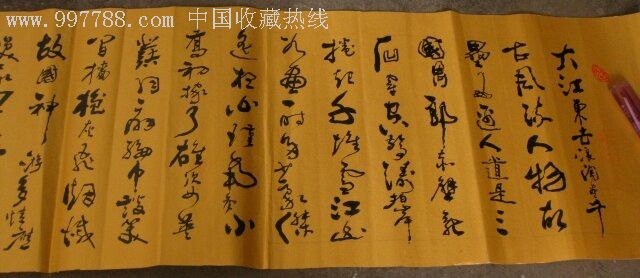 www.997788.com 中国收藏热线
大江東去浪淘盡千
古風流人物故
壘西邊人道是三
國周郎赤壁亂
石穿空驚濤拍岸
捲起千堆雪江山
如畫一時多少豪傑
遙想公瑾當年小
喬初嫁了雄姿英
發羽扇綸巾談笑
間檣櫓灰飛煙滅
故國神遊多情應